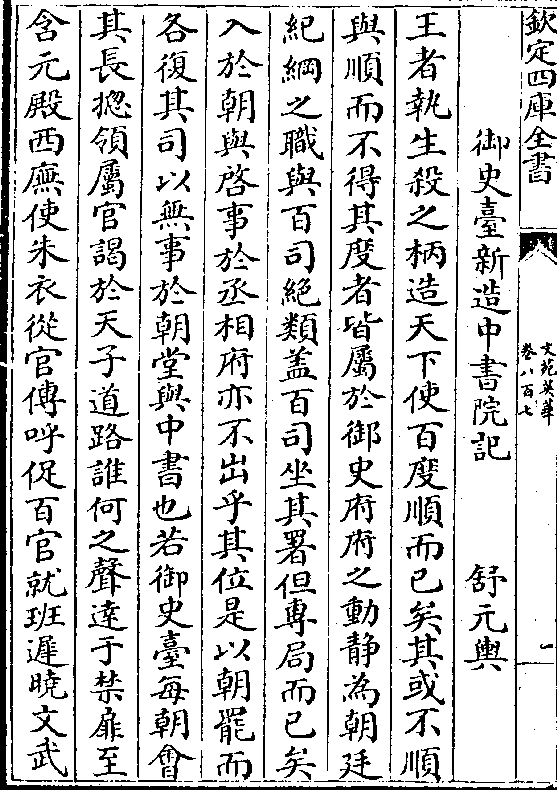 欽定四庫全書
文苑英華
卷八百七
一
御史臺新造中書院記 舒元輿
王者執生殺之柄造天下使百度順而已矣其或不順
與順而不得其度者皆屬於御史府府之動静為朝廷
紀綱之職與百司絶類盖百司坐其署但專局而已矣
入於朝與啓事於丞相府亦不出乎其位是以朝罷而
各復其司以無事於朝堂與中書也若御史臺每朝會
其長揔領屬官謁於天子道路誰何之聲達于禁扉至
含元殿西廡使朱衣從官傳呼促百官就班遲曉文武